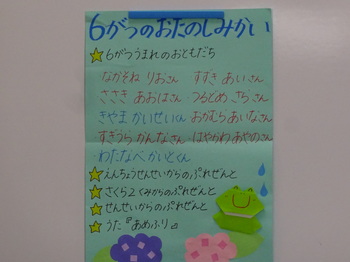 6がつのおたのしみかい
★6がつうまれのおともだち
ながそね りおさん すすき あいさん
ささき あおはさん つるどめ さちさん
きやま かいせいくん おかむら あいなさん
すぎうら かんなさん はやかわ あやのさん
わたなべ かいとくん
★えんちょうせんせいからのぷれぜんと
★さくら2くみからのぷれぜんと
★せんせいからのぷれぜんと
★うた『あめふり』